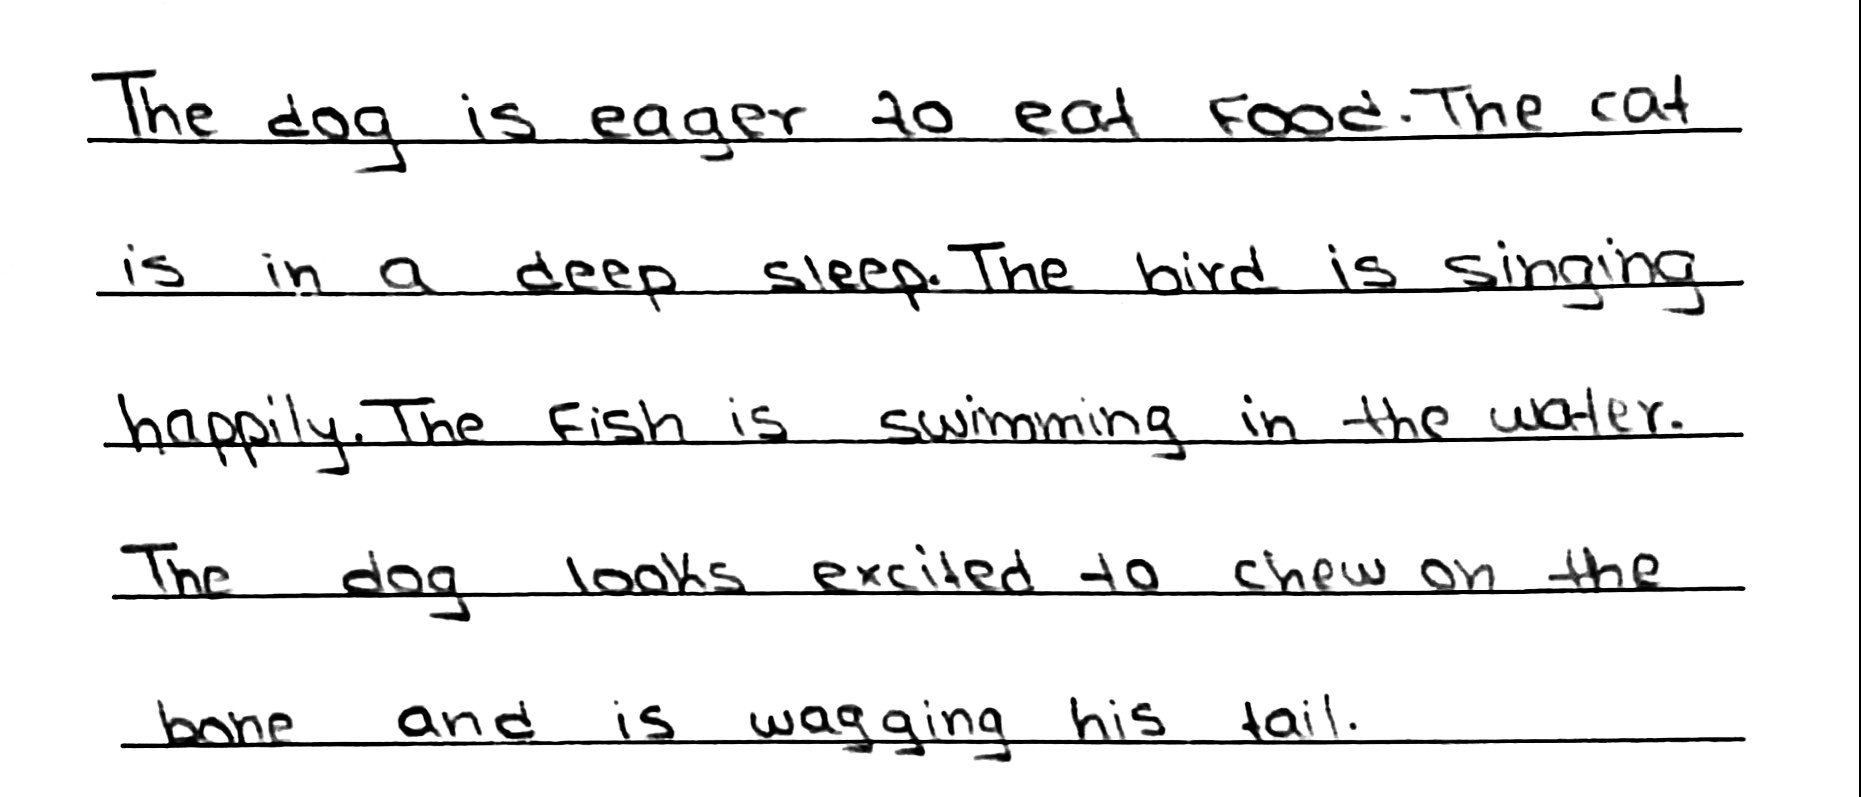 The dog is eager to eat Food. The cat
is in a deep sleep. The bird is singing
happily. The Fish is swimming in the water.
The dog looks excited to chew on the
bone and is wagging his tail.